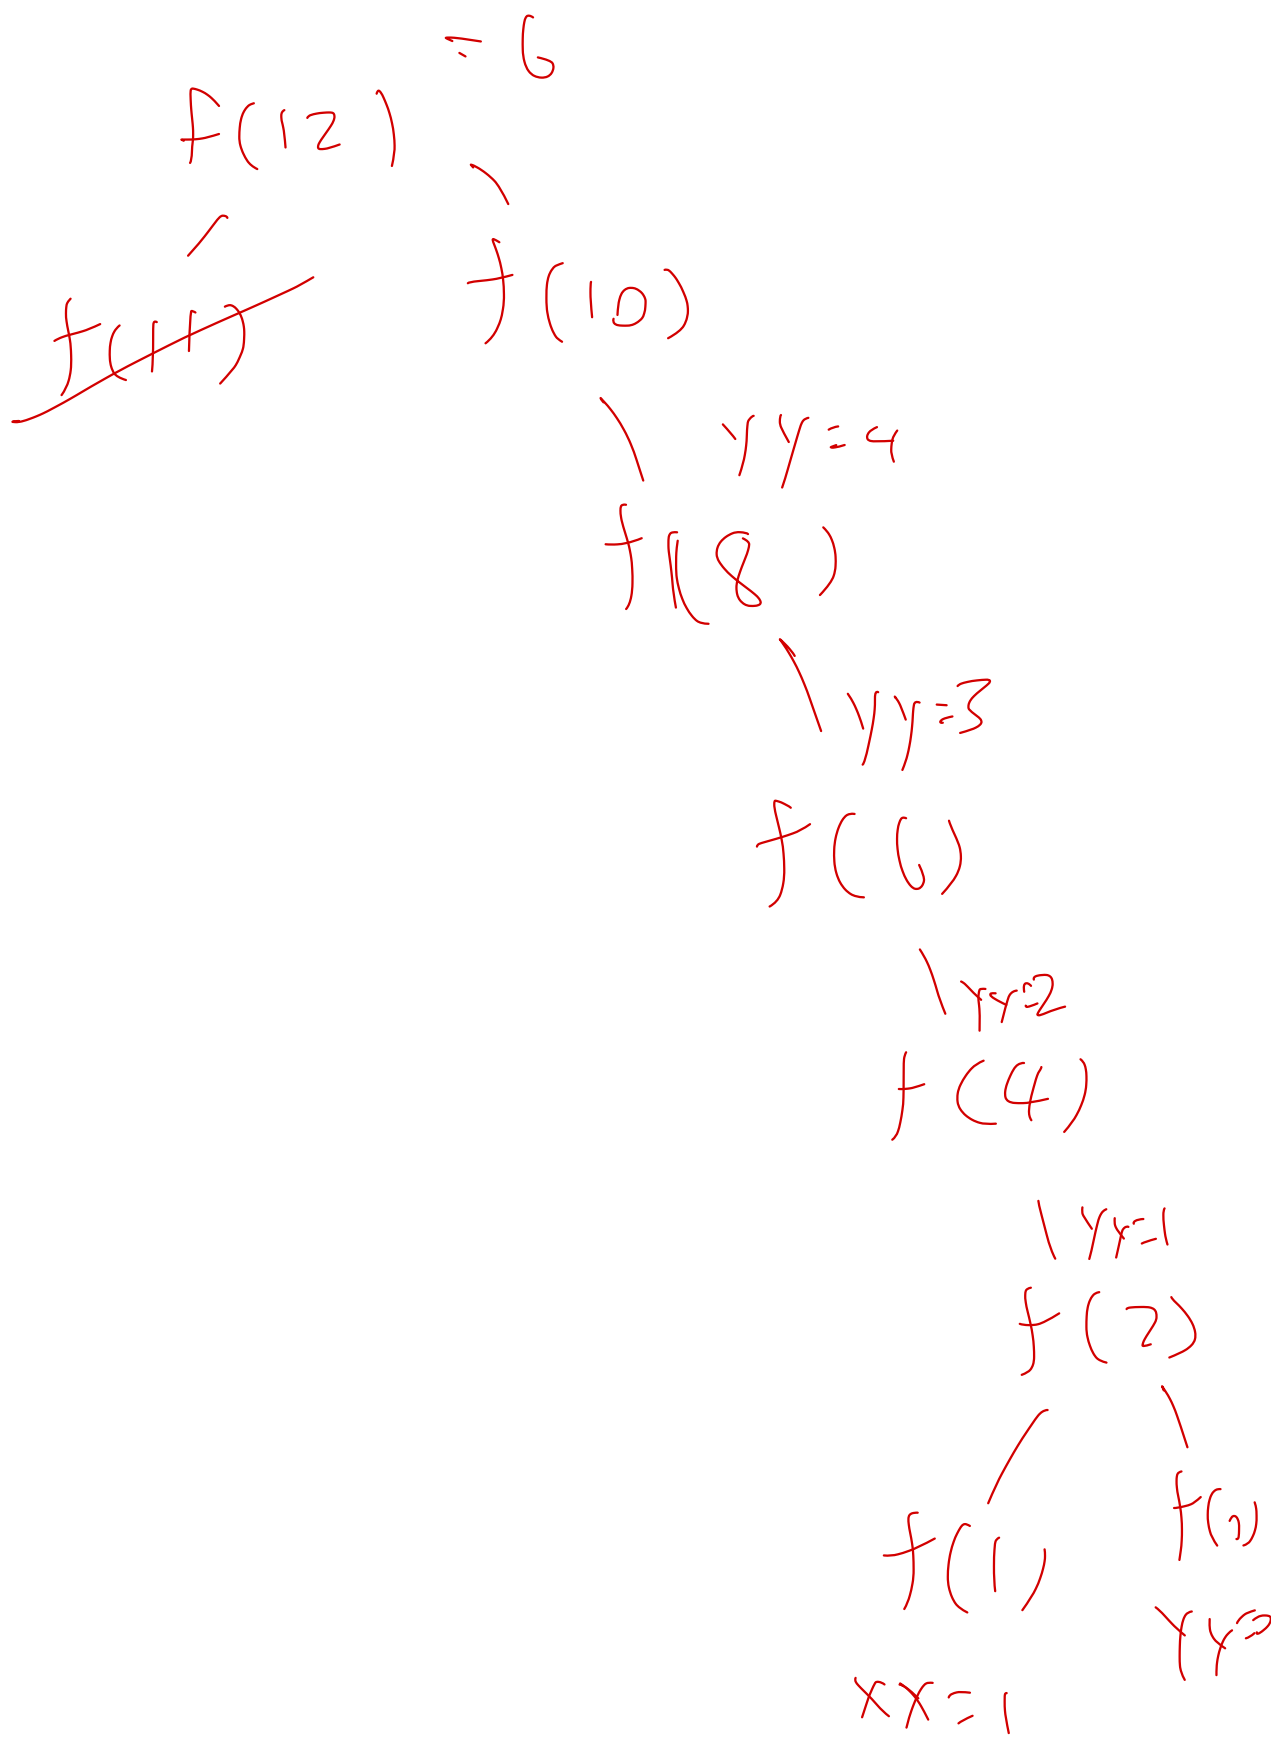 = 6
f(12)
f(11)
f(10)
yy=4
f(8)
yy=3
f(6)
yy=2
f(4)
yy=1
f(2)
f(1)
f(0)
yy=0
xx=1